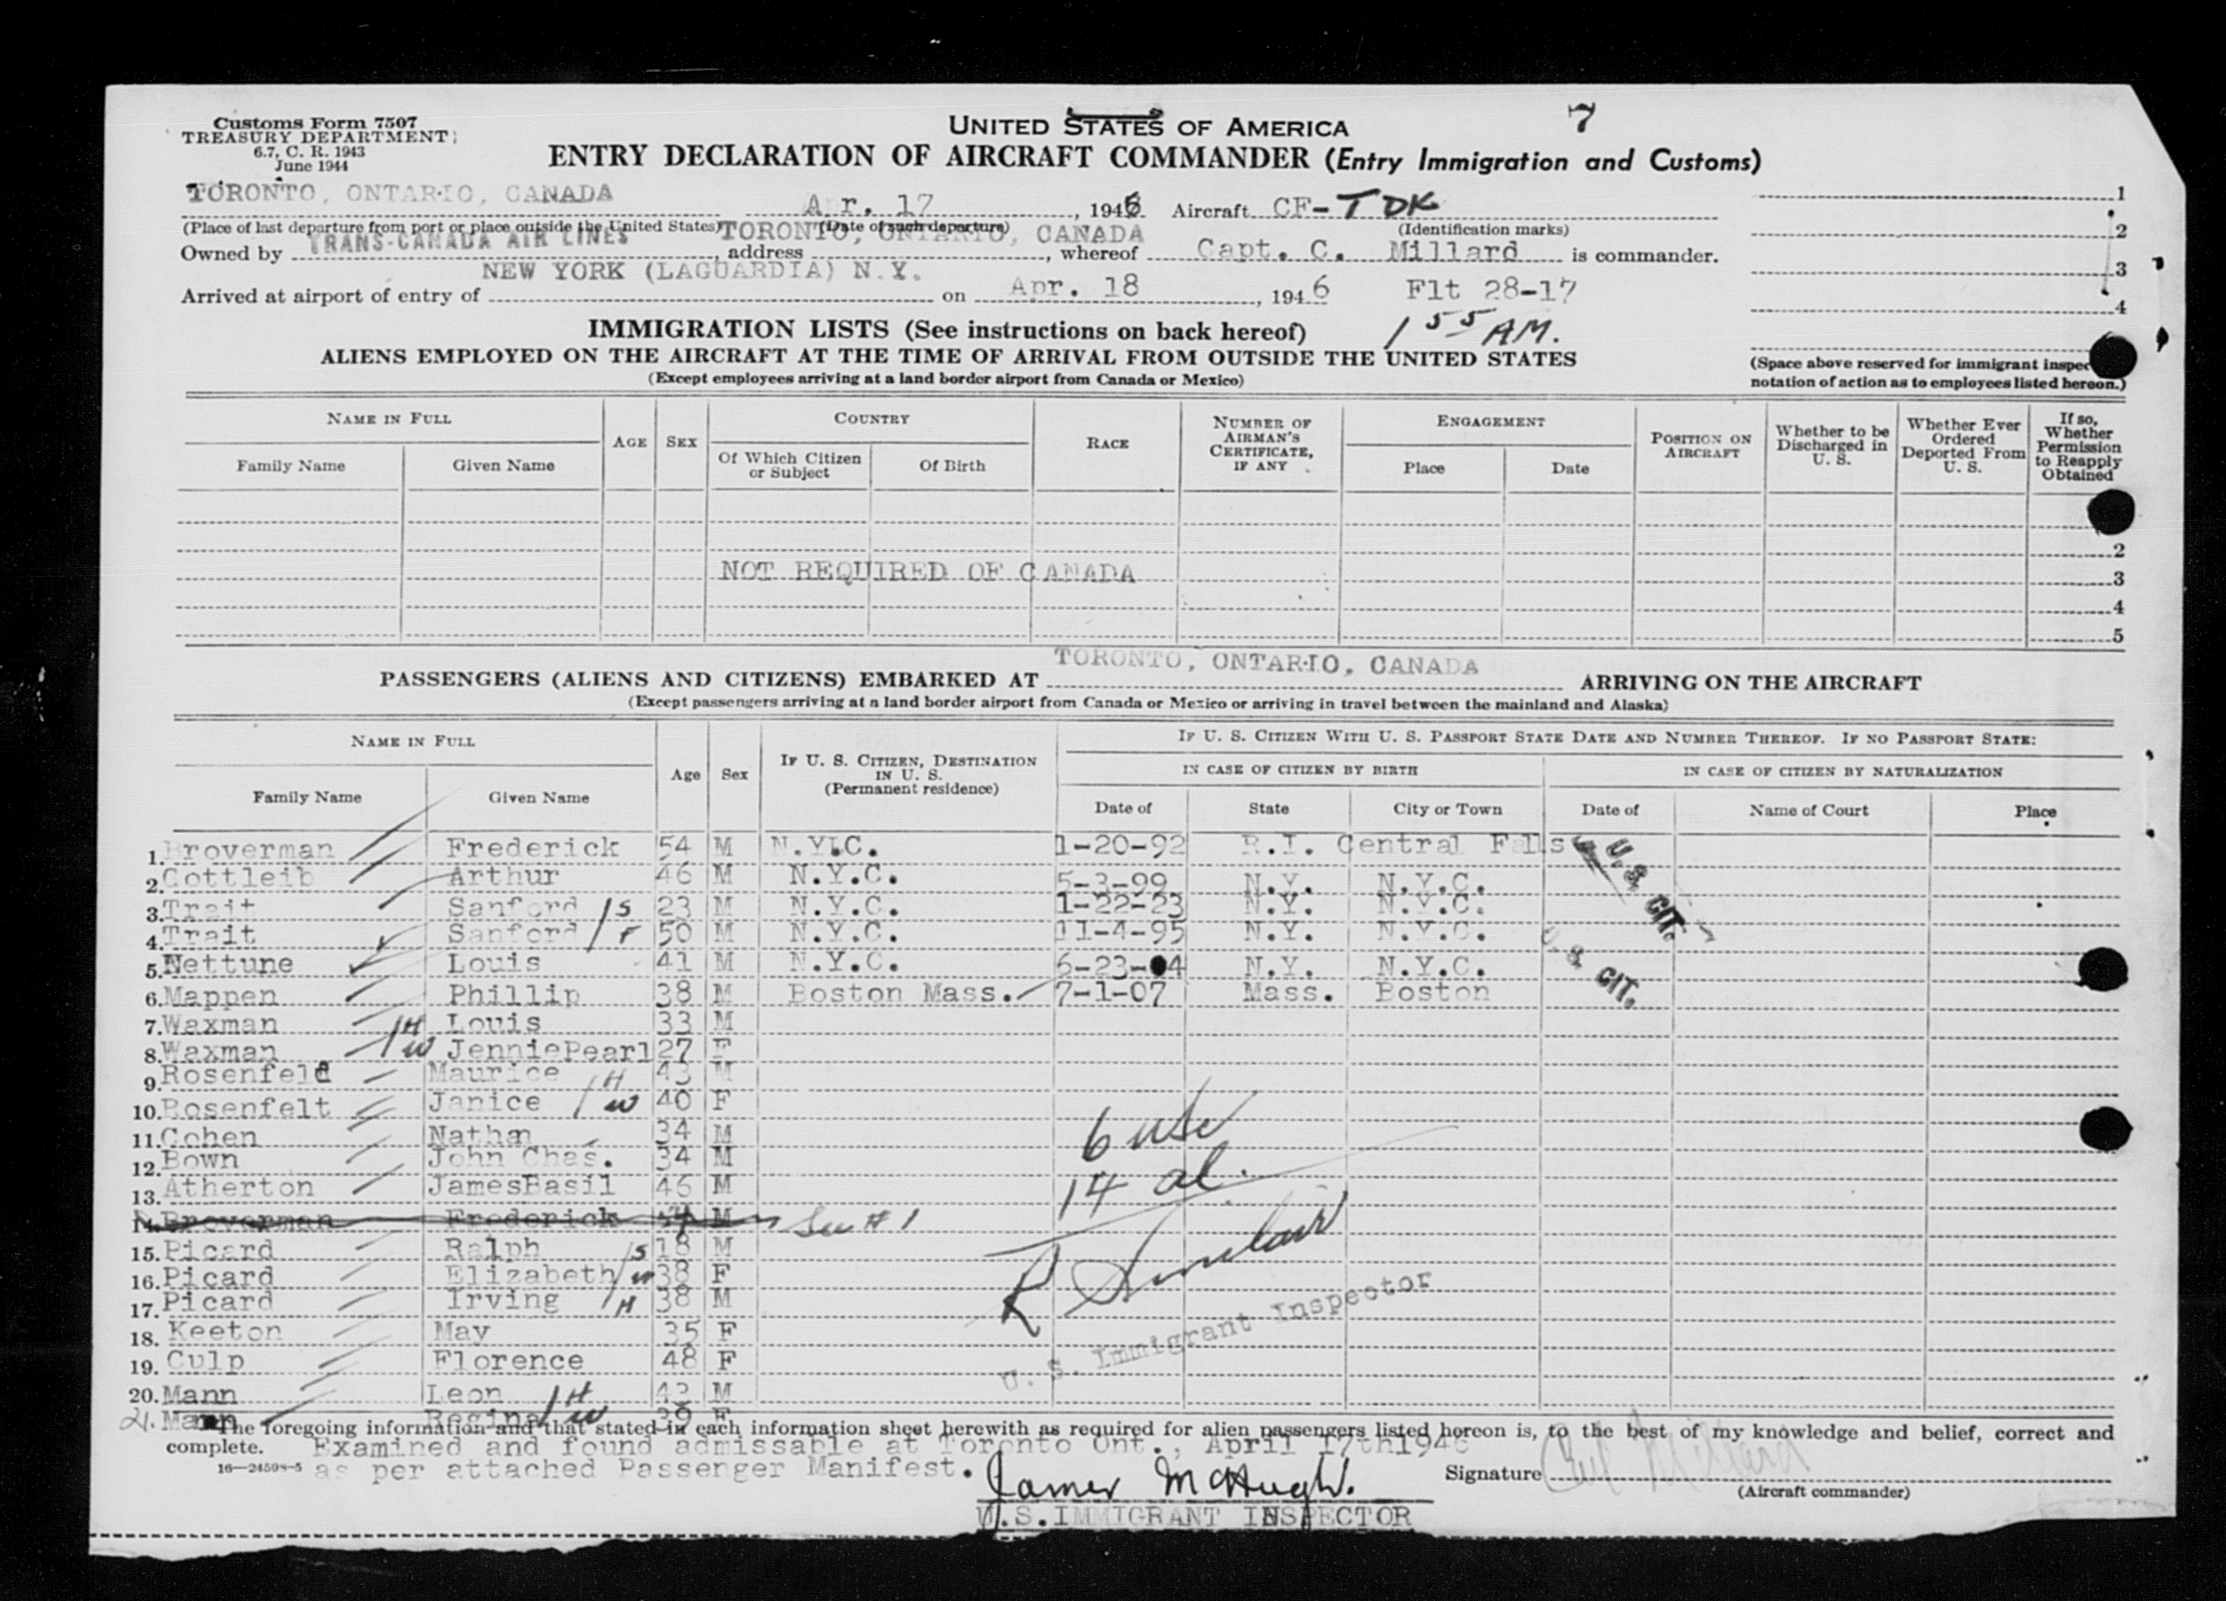 7
Customs Form 7507
TREASURY DEPARTMENT
6.7, C. R. 1943
June 1944
UNITED STATES OF AMERICA
ENTRY DECLARATION OF AIRCRAFT COMMANDER (Entry Immigration and Customs)
TORONTO, ONTARIO, CANADA Apr. 17, 1946 Aircraft CF-TDK 1
(Place of last departure from port or place outside the United States) (Date of such departure) (Identification marks) 2
Owned by TRANS-CANADA AIR LINES, address TORONTO, ONTARIO, CANADA, whereof Capt. C. Millard is commander. 3
Arrived at airport of entry of NEW YORK (LAGUARDIA) N.Y. on Apr. 18, 1946 Flt 28-17 4
IMMIGRATION LISTS (See instructions on back hereof) 1 55 AM.
ALIENS EMPLOYED ON THE AIRCRAFT AT THE TIME OF ARRIVAL FROM OUTSIDE THE UNITED STATES
(Except employees arriving at a land border airport from Canada or Mexico)
(Space above reserved for immigrant inspec
notation of action as to employees listed hereon.)
NAME IN FULL AGE SEX COUNTRY RACE NUMBER OF AIRMAN'S CERTIFICATE, IF ANY ENGAGEMENT POSITION ON AIRCRAFT Whether to be Discharged in U. S. Whether Ever Ordered Deported From U. S. If so, Whether Permission to Reapply Obtained
Family Name Given Name Of Which Citizen or Subject Of Birth Place Date
2
NOT REQUIRED OF CANADA 3
4
5
PASSENGERS (ALIENS AND CITIZENS) EMBARKED AT TORONTO, ONTARIO, CANADA ARRIVING ON THE AIRCRAFT
(Except passengers arriving at a land border airport from Canada or Mexico or arriving in travel between the mainland and Alaska)
NAME IN FULL Age Sex IF U. S. CITIZEN, DESTINATION IN U. S. (Permanent residence) IF U. S. CITIZEN WITH U. S. PASSPORT STATE DATE AND NUMBER THEREOF. IF NO PASSPORT STATE:
IN CASE OF CITIZEN BY BIRTH IN CASE OF CITIZEN BY NATURALIZATION
Family Name Given Name Date of State City or Town Date of Name of Court Place
1. Broverman Frederick 54 M N.Y.C. 1-20-92 R.I. Central Falls U. S. CIT.
2. Gottleib Arthur 46 M N.Y.C. 5-3-99 N.Y. N.Y.C.
3. Trait Sanford /S 23 M N.Y.C. 1-22-23 N.Y. N.Y.C.
4. Trait Sanford /F 50 M N.Y.C. 11-4-95 N.Y. N.Y.C.
5. Nettune Louis 41 M N.Y.C. 6-23-04 N.Y. N.Y.C. U. S. CIT.
6. Mappen Phillip 38 M Boston Mass. 7-1-07 Mass. Boston
7. Waxman /H Louis 33 M
8. Waxman /W JenniePearl 27 F
9. Rosenfeld Maurice /H 43 M
10. Rosenfelt Janice /W 40 F
11. Cohen Nathan 34 M
12. Bown John Chas. 34 M
13. Atherton JamesBasil 46 M
14. Broverman Frederick 54 M See # 1
15. Picard Ralph /S 18 M
16. Picard Elizabeth /W 38 F
17. Picard Irving /H 38 M
18. Keeton May 35 F
19. Culp Florence 48 F
20. Mann Leon /H 43 M
21. Mann Regina /W 39 F
6 USC
14 al.
R Sinclair
U. S. Immigrant Inspector
The foregoing information and that stated in each information sheet herewith as required for alien passengers listed hereon is, to the best of my knowledge and belief, correct and
complete. Examined and found admissable at Toronto Ont., April 17th1946
16—24598-5 as per attached Passenger Manifest.
James McHugh. Signature
(Aircraft commander)
U.S.IMMIGRANT INSPECTOR